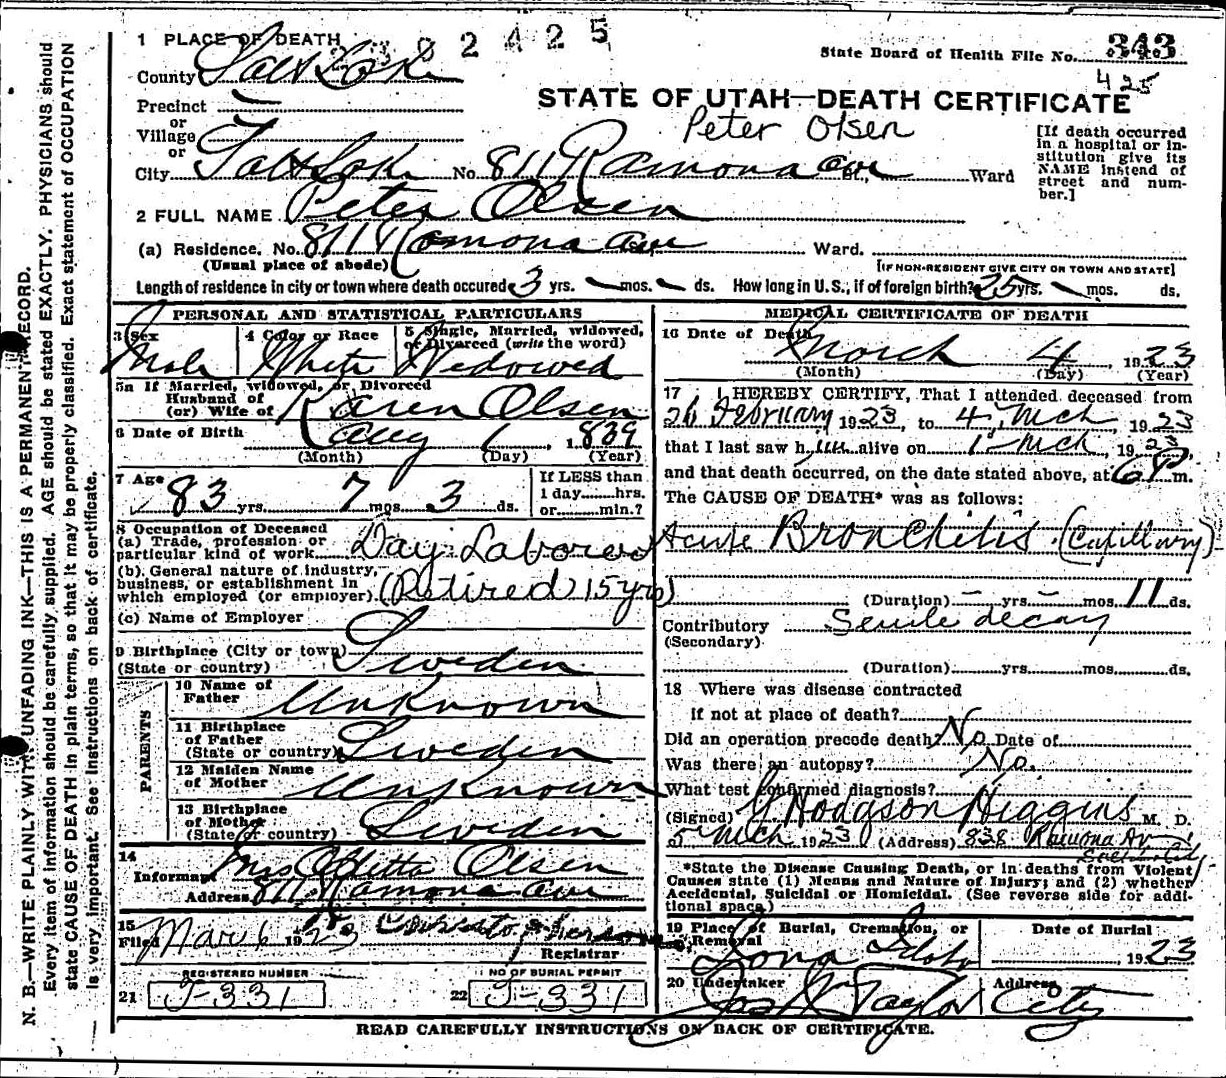 2382425
1 PLACE OF DEATH
State Board of Health File No. 343
425
County Salt Lake
STATE OF UTAH—DEATH CERTIFICATE
Precinct
or
Village
or
Peter Olsen
[If death occurred in a hospital or institution give its NAME instead of street and number.]
City Salt Lake No 811 Ramona Ave St., Ward
2 FULL NAME Peter Olsen
(a) Residence. No. 811 Ramona Ave St. Ward.
(Usual place of abode) [IF NON-RESIDENT GIVE CITY OR TOWN AND STATE]
Length of residence in city or town where death occured 3 yrs. — mos. — ds. How long in U.S., if of foreign birth? 25 yrs. — mos. ds.
PERSONAL AND STATISTICAL PARTICULARS
3 Sex Male
4 Color or Race White
5 Single, Married, widowed, or Divorced (write the word) Wedowed
5a If Married, widowed, or Divorced
Husband of
(or) Wife of Karen Olsen
6 Date of Birth Aug 1, 1839
(Month) (Day) (Year)
7 Age 83 yrs. 7 mos 3 ds.
If LESS than
1 day......hrs.
or......min.?
8 Occupation of Deceased
(a) Trade, profession or
particular kind of work Day Laborer
(b) General nature of industry,
business, or establishment in
which employed (or employer). (Retired) 15 yrs)
(c) Name of Employer
9 Birthplace (City or town)
(State or country) Sweden
PARENTS
10 Name of
Father Unknown
11 Birthplace
of Father
(State or country) Sweden
12 Maiden Name
of Mother Unknown
13 Birthplace
of Mother
(State or country) Sweden
14
Informant Mrs Olsen
Address 811 Ramona Ave
15
Filed Mar 6 1923
Registrar
REGISTERED NUMBER
21 J-331
NO OF BURIAL PERMIT
22 J-331
MEDICAL CERTIFICATE OF DEATH
16 Date of Death
March 4, 1923
(Month) (Day) (Year)
17 I HEREBY CERTIFY, That I attended deceased from
26 February 1923, to 4 Mch, 1923
that I last saw him alive on 1 Mch, 1923
and that death occurred, on the date stated above, at 6 P m.
The CAUSE OF DEATH* was as follows:
Acute Bronchitis (Capillary)
(Duration) – yrs – mos 11 ds.
Contributory Senile decay
(Secondary)
(Duration) yrs. mos. ds.
18 Where was disease contracted
if not at place of death?
Did an operation precede death? No Date of
Was there an autopsy? No.
What test confirmed diagnosis?
(Signed) Hodgson Higgins M. D.
5 Mch 1923 (Address) 838 Ramona Av
Salt Lake City
*State the Disease Causing Death, or in deaths from Violent
Causes state (1) Means and Nature of Injury; and (2) whether
Accidental, Suicidal or Homicidal. (See reverse side for addi-
tional space.)
19 Place of Burial, Cremation, or
Removal
Iona Idaho
Date of Burial
1923
20 Undertaker
Jas W Taylor
Address
City
READ CAREFULLY INSTRUCTIONS ON BACK OF CERTIFICATE.
N. B.—WRITE PLAINLY WITH UNFADING INK—THIS IS A PERMANENT RECORD.
Every item of information should be carefully supplied. AGE should be stated EXACTLY. PHYSICIANS should
state CAUSE OF DEATH in plain terms, so that it may be properly classified. Exact statement of OCCUPATION
is very important. See instructions on back of certificate.